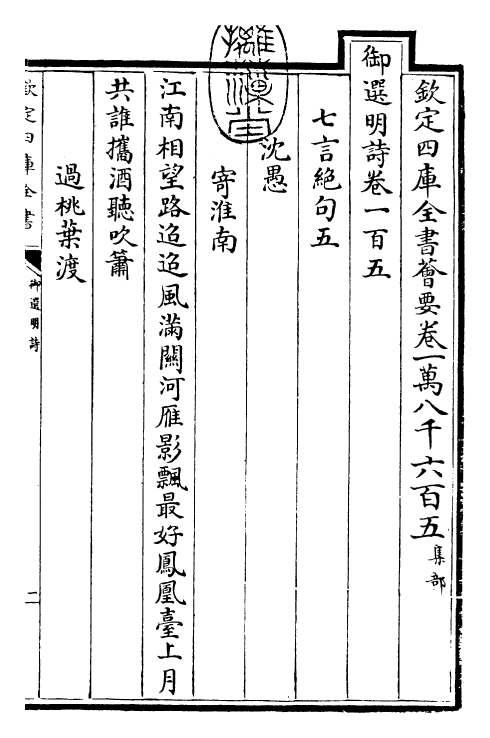 欽定四庫全書薈要卷一萬八千六百五 集部
御選明詩卷一百五
七言絶句五
沈愚
寄淮南
江南相望路迢迢風滿關河雁影飄最好鳳凰臺上月
共誰攜酒聽吹簫
過桃葉渡
欽定四庫全書
御選明詩